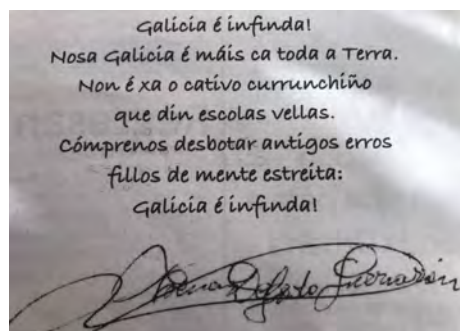 Galicia é infinda!
Nosa Galicia é máis ca toda a Terra.
Non é xa o cativo currunchiño
que din escolas vellas.
Cómprenos desbotar antigos erros
fillos de mente estreita:
Galicia é infinda!
Delgado